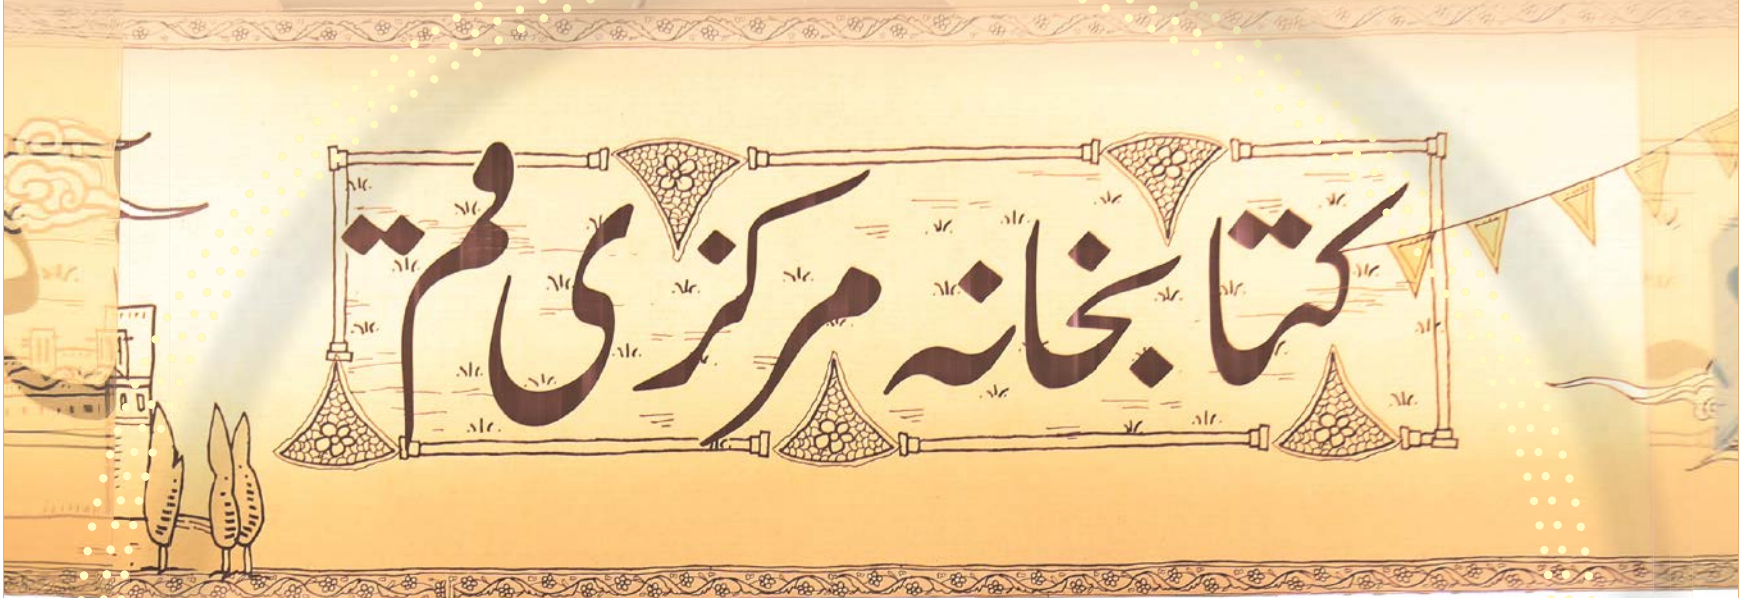 کتابخانه مرکزی قم